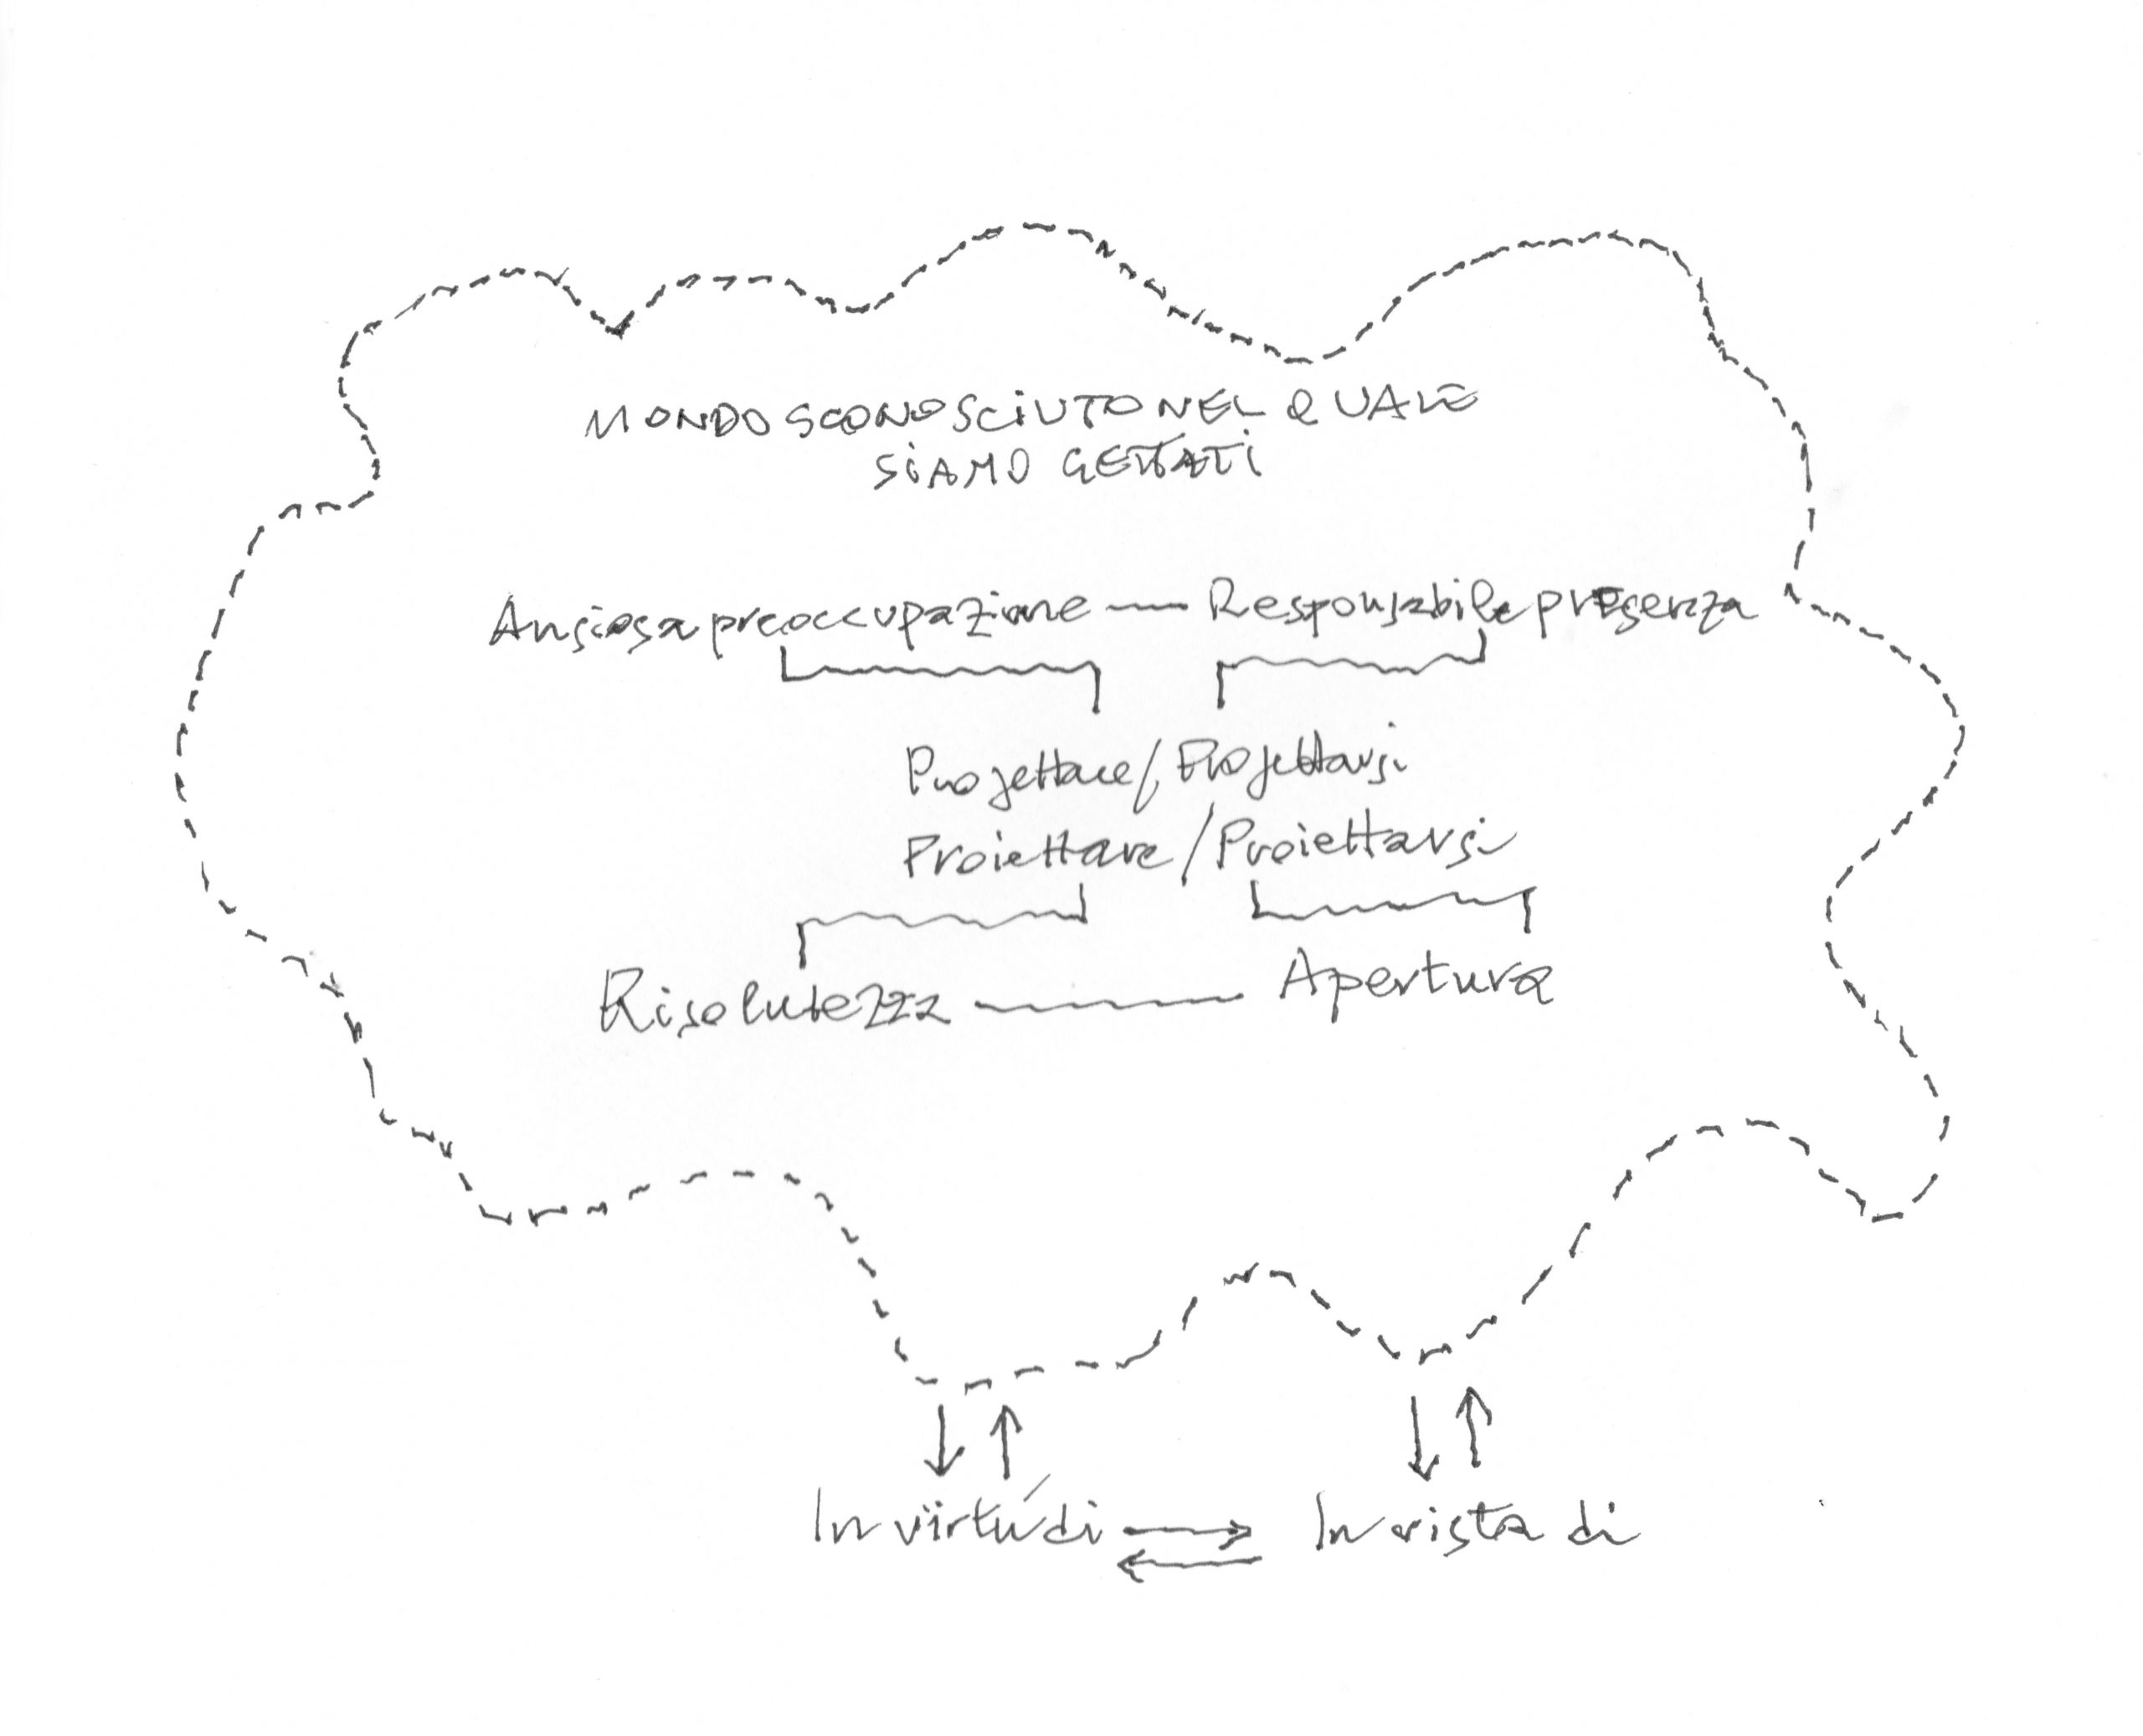 MONDO SCONOSCIUTO NEL QUALE
SIAMO GETTATI
Ansiosa preoccupazione — Responsabile presenza
Progettare / Progettarsi
Proiettare / Proiettarsi
Risolutezza — Apertura
In virtú di In vista di